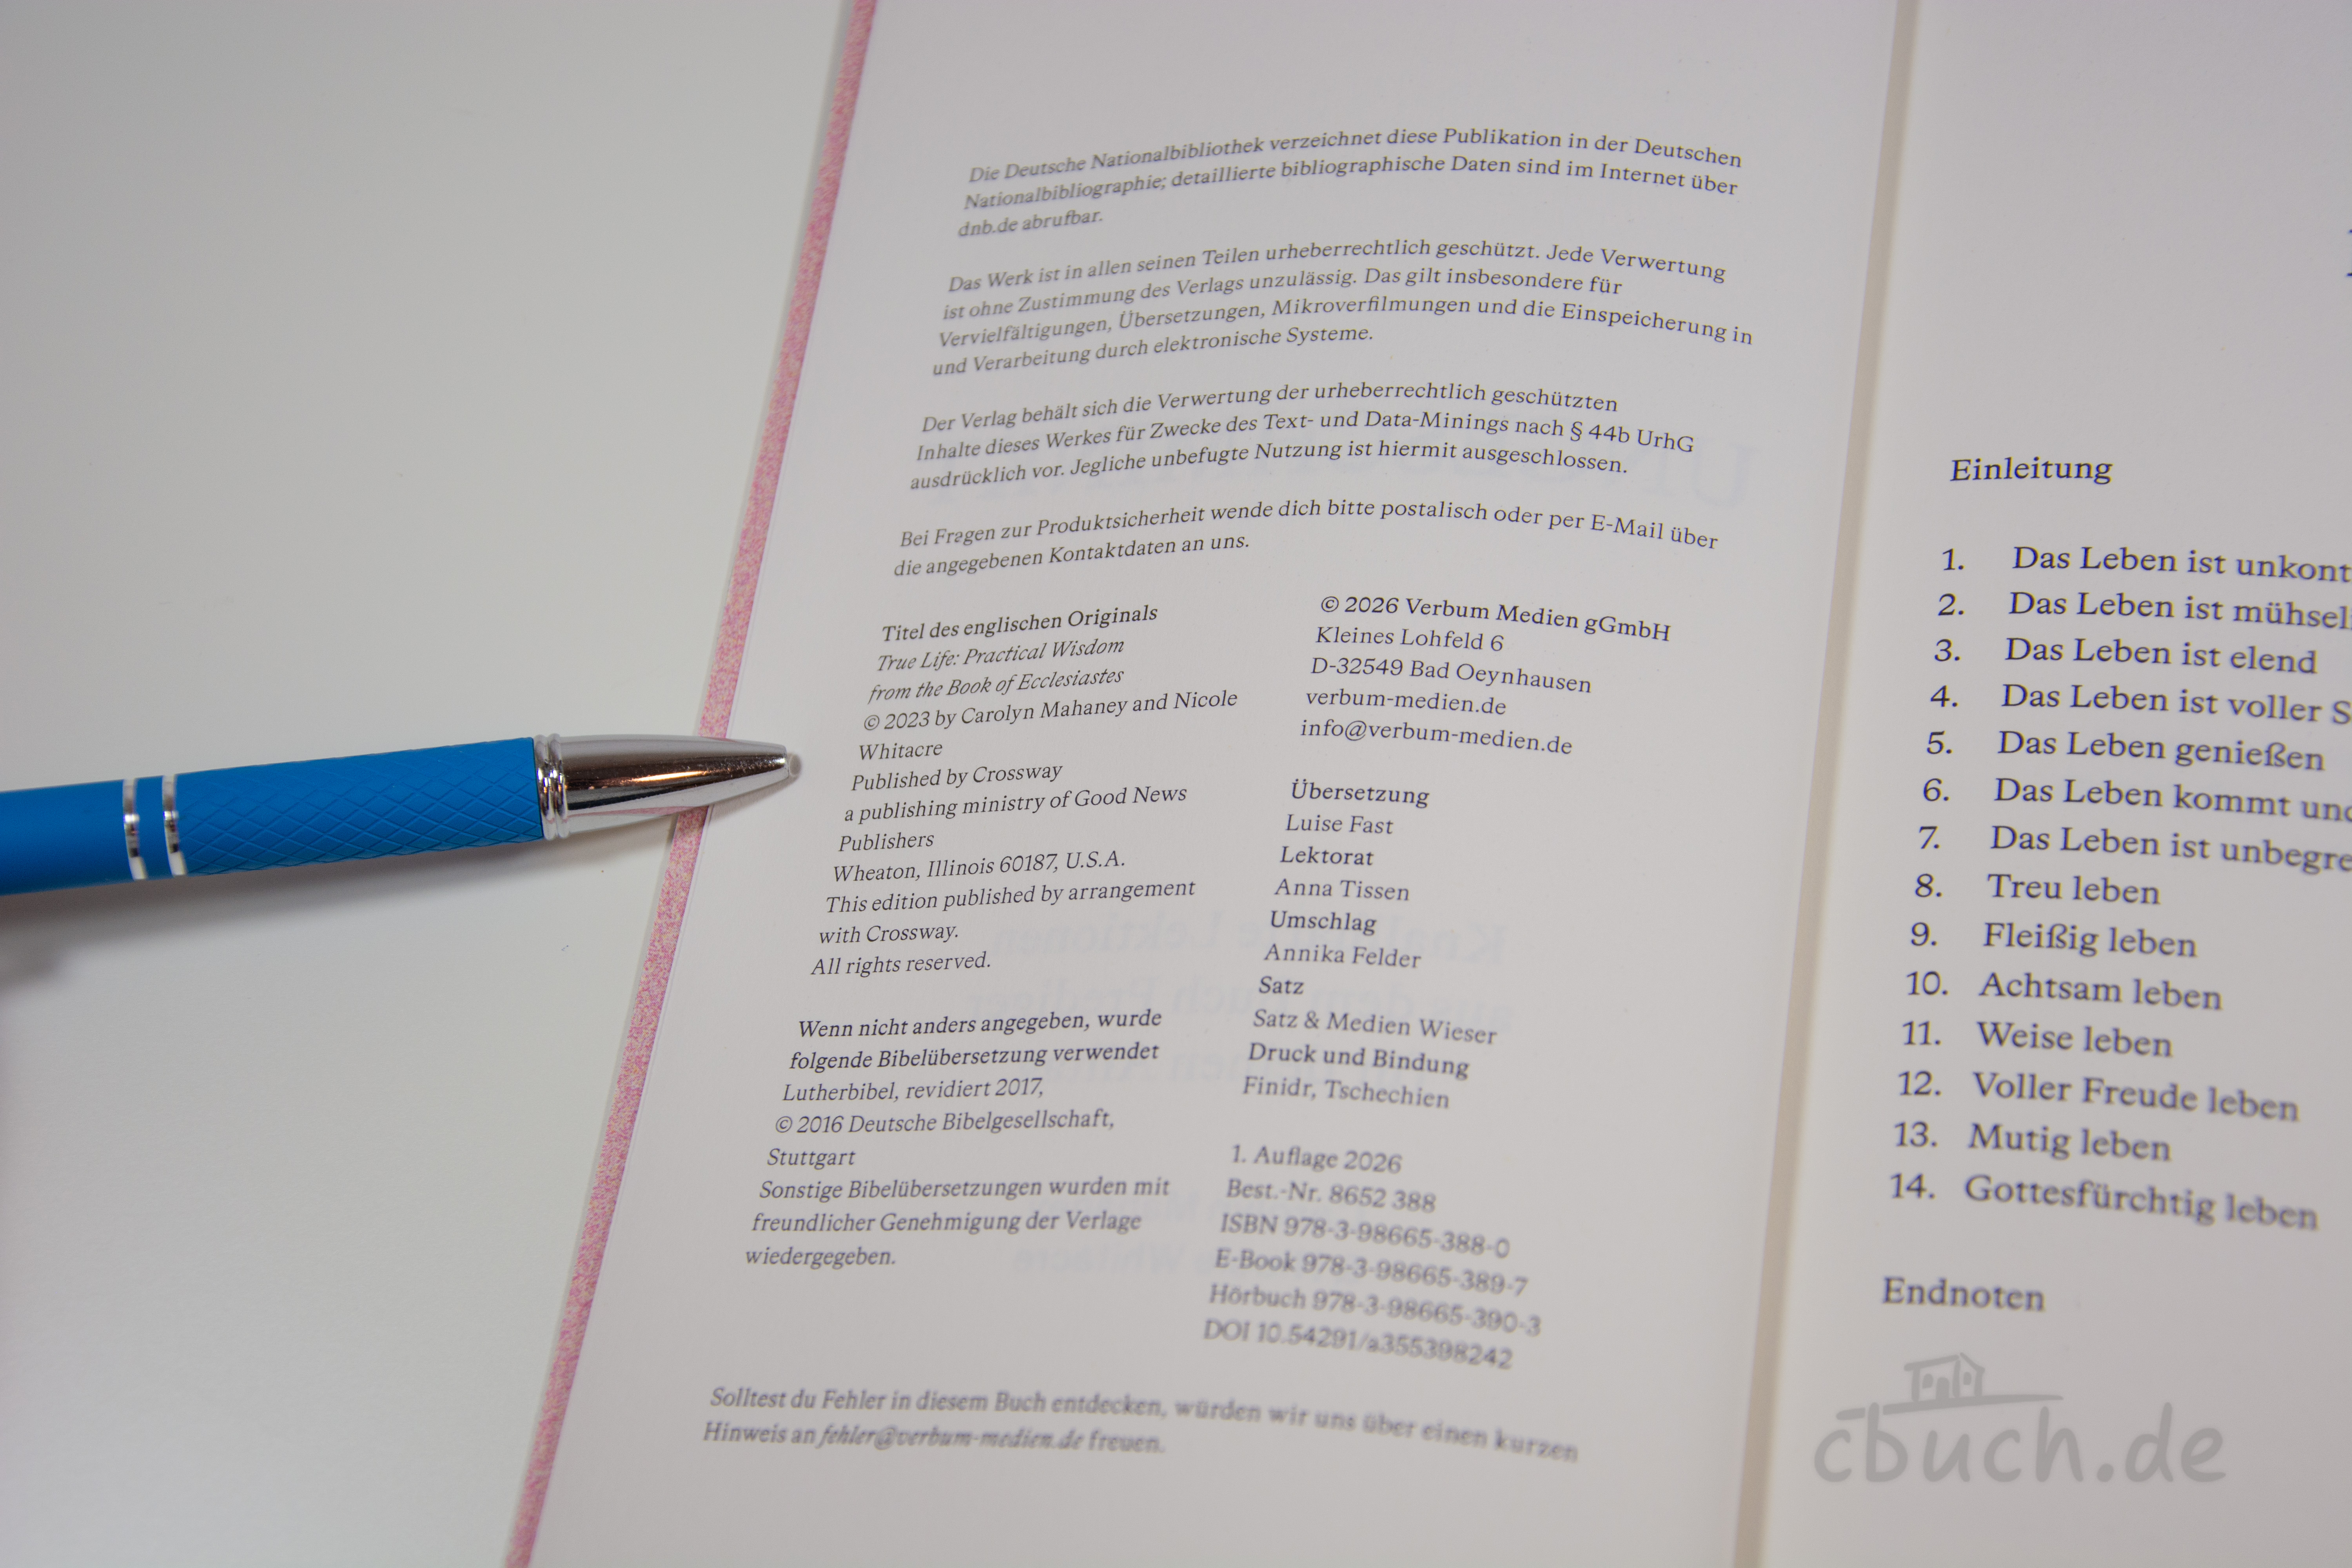 Die Deutsche Nationalbibliothek verzeichnet diese Publikation in der Deutschen
Nationalbibliographie; detaillierte bibliographische Daten sind im Internet über
dnb.de abrufbar.
Das Werk ist in allen seinen Teilen urheberrechtlich geschützt. Jede Verwertung
ist ohne Zustimmung des Verlags unzulässig. Das gilt insbesondere für
Vervielfältigungen, Übersetzungen, Mikroverfilmungen und die Einspeicherung in
und Verarbeitung durch elektronische Systeme.
Der Verlag behält sich die Verwertung der urheberrechtlich geschützten
Inhalte dieses Werkes für Zwecke des Text- und Data-Minings nach § 44b UrhG
ausdrücklich vor. Jegliche unbefugte Nutzung ist hiermit ausgeschlossen.
Bei Fragen zur Produktsicherheit wende dich bitte postalisch oder per E-Mail über
die angegebenen Kontaktdaten an uns.
Titel des englischen Originals
True Life: Practical Wisdom
from the Book of Ecclesiastes
© 2023 by Carolyn Mahaney and Nicole
Whitacre
Published by Crossway
a publishing ministry of Good News
Publishers
Wheaton, Illinois 60187, U.S.A.
This edition published by arrangement
with Crossway.
All rights reserved.
Wenn nicht anders angegeben, wurde
folgende Bibelübersetzung verwendet
Lutherbibel, revidiert 2017,
© 2016 Deutsche Bibelgesellschaft,
Stuttgart
Sonstige Bibelübersetzungen wurden mit
freundlicher Genehmigung der Verlage
wiedergegeben.
© 2026 Verbum Medien gGmbH
Kleines Lohfeld 6
D-32549 Bad Oeynhausen
verbum-medien.de
info@verbum-medien.de
Übersetzung
Luise Fast
Lektorat
Anna Tissen
Umschlag
Annika Felder
Satz
Satz & Medien Wieser
Druck und Bindung
Finidr, Tschechien
1. Auflage 2026
Best.-Nr. 8652 388
ISBN 978-3-98665-388-0
E-Book 978-3-98665-389-7
Hörbuch 978-3-98665-390-3
DOI 10.54291/a355398242
Solltest du Fehler in diesem Buch entdecken, würden wir uns über einen kurzen
Hinweis an fehler@verbum-medien.de freuen.
Einleitung
1. Das Leben ist unkont
2. Das Leben ist mühseli
3. Das Leben ist elend
4. Das Leben ist voller S
5. Das Leben genießen
6. Das Leben kommt und
7. Das Leben ist unbegre
8. Treu leben
9. Fleißig leben
10. Achtsam leben
11. Weise leben
12. Voller Freude leben
13. Mutig leben
14. Gottesfürchtig leben
Endnoten
cbuch.de